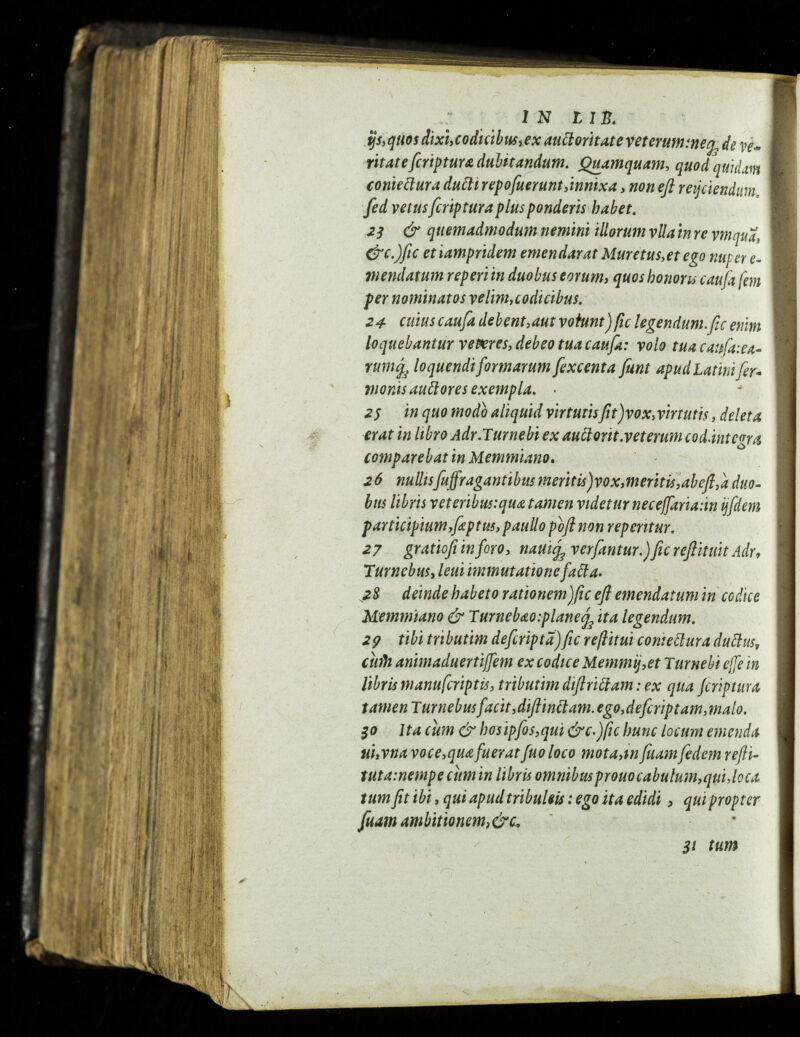 IN LIB.
ijs,quos dixi,codicibus,ex auctoritate veterum:neq; de ve-
ritate scripturæ dubitandum. Quamquam, quod quidam
coniectura ducti reposuerunt,innixa, non est reijciendum,
sed vetus scriptura plus ponderis habet.
23 & quemadmodum nemini illorum vlla in re vmquā,
&c.)sic et iampridem emendarat Muretus,et ego nuper e-
mendatum reperi in duobus eorum, quos honoris causa sem
per nominatos velim,codicibus.
24 cuius causa debent,aut volunt) sic legendum.sic enim
loquebantur veteres, debeo tua causa: volo tua causa:ea-
rumq; loquendi formarum sexcenta sunt apud Latini ser-
monis auctores exempla.
25 in quo modo aliquid virtutis sit)vox,virtutis, deleta
erat in libro Adr.Turnebi ex auctorit.veterum cod.integra
comparebat in Memmiano.
26 nullis suffragantibus meritis)vox,meritis,abest,à duo-
bus libris veteribus:quæ tamen videtur necessaria:in ijsdem
participium,sæptus, paullo pòst non reperitur.
27 gratiosi in foro, nauiq; versantur.)sic restituit Adr,
Turnebus, leui immutatione facta.
28 deinde habeto rationem)sic est emendatum in codice
Memmiano & Turnebæo:planeq; ita legendum.
29 tibi tributim descriptā)sic restitui coniectura ductus,
cùm animaduertissem ex codice Memmij,et Turnebi esse in
libris manuscriptis, tributim districtam: ex qua scriptura
tamen Turnebus facit,distinctam.ego,descriptam,malo.
30 Ita cùm & hos ipsos,qui &c.)sic hunc locum emenda
ui,vna voce,quæ fuerat suo loco mota,in suam sedem resti-
tuta:nempe cùm in libris omnibus pro uocabulum,qui,loca
tum sit ibi, qui apud tribuleis: ego ita edidi, qui propter
suam ambitionem,&c.
31 tum